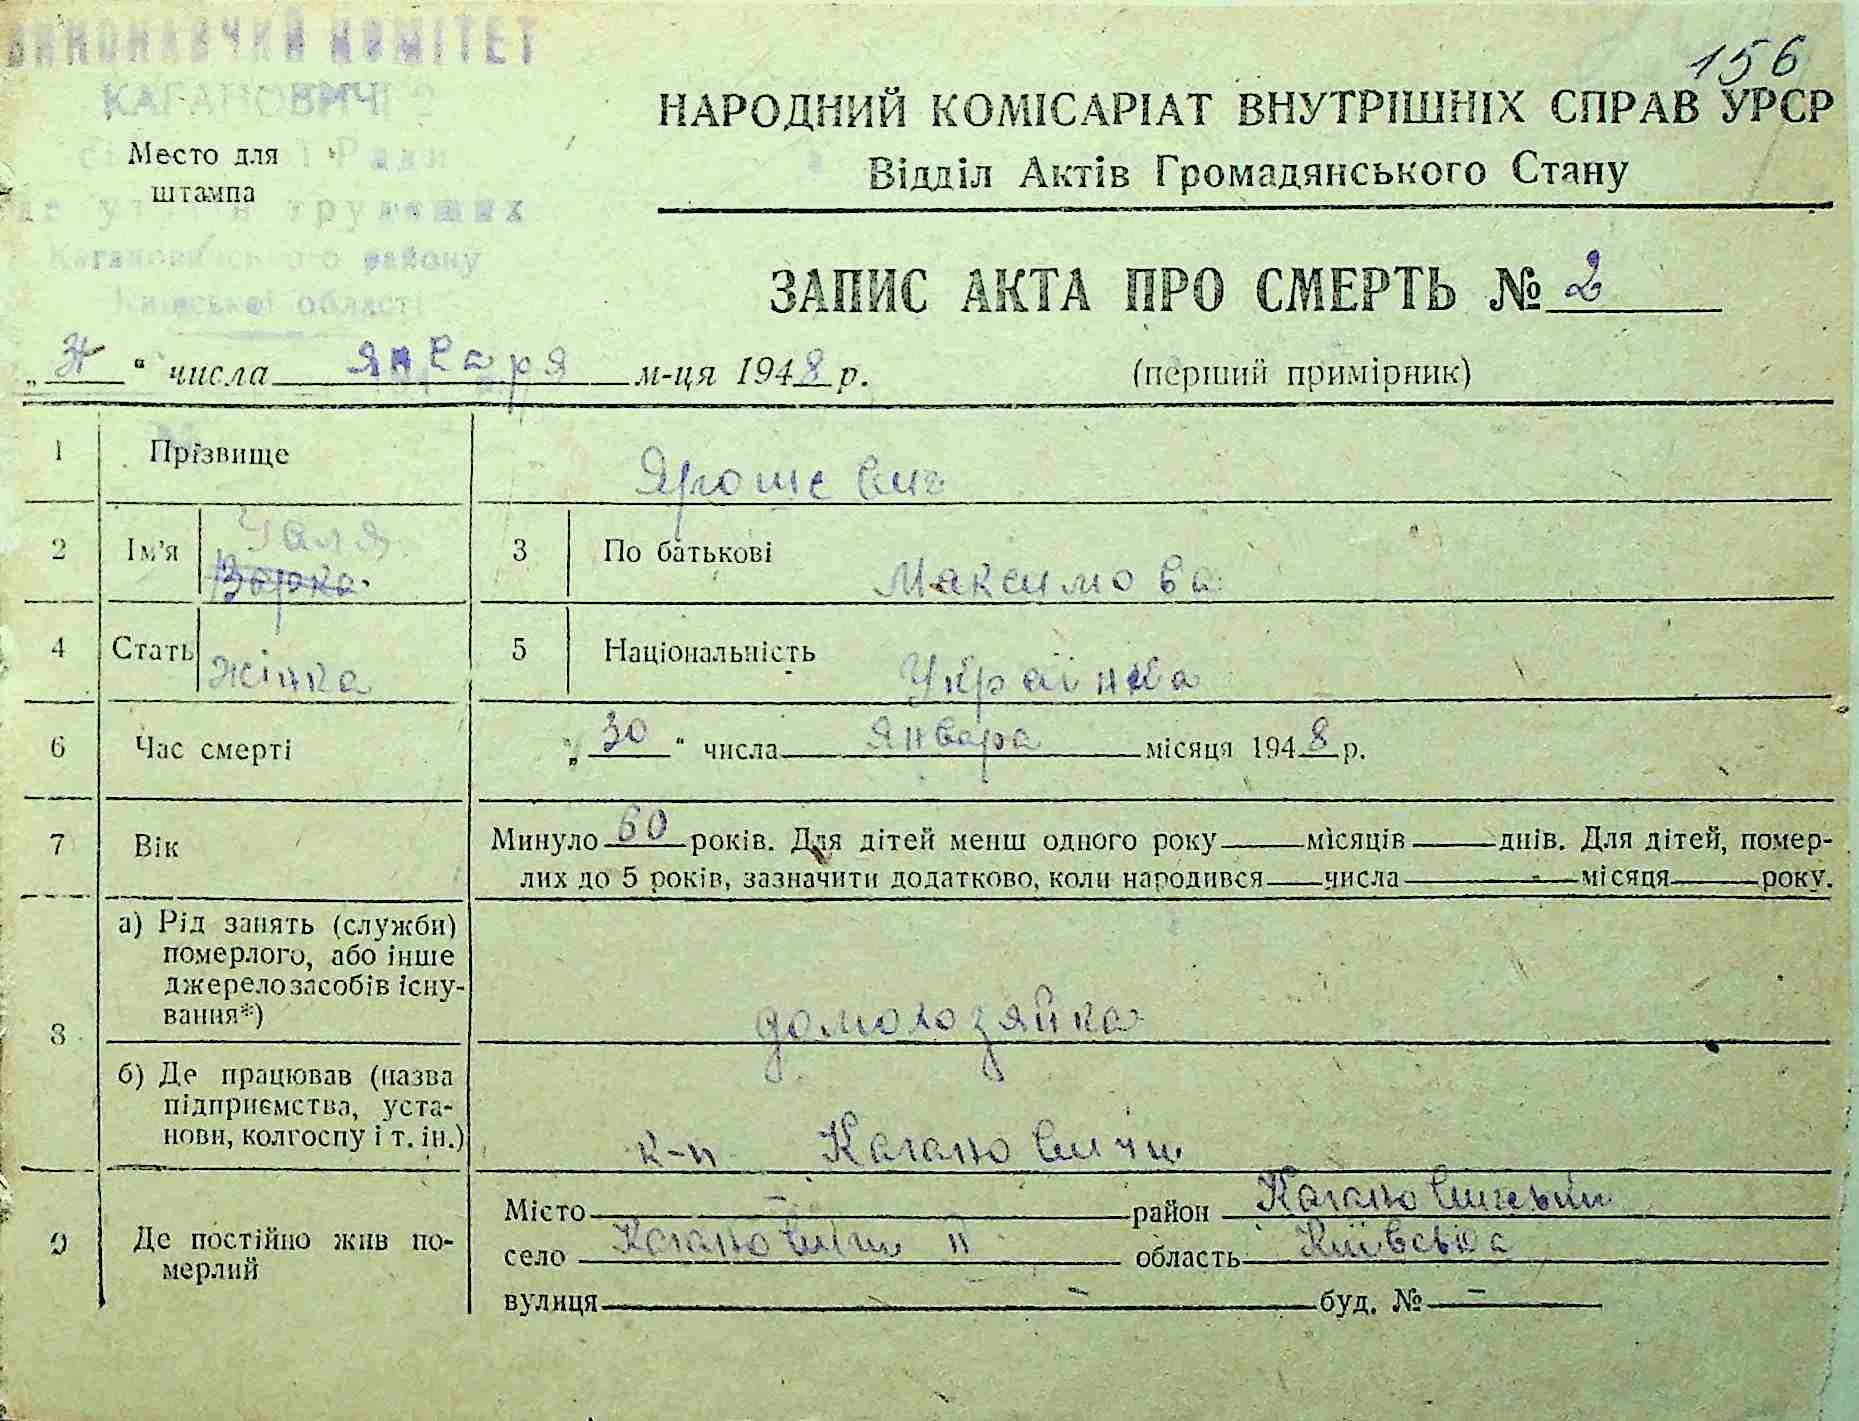 156
ВИКОНАВЧИЙ КОМІТЕТ
КАГАНОВИЧІ 2
сільської Ради
депутатів трудящих
Кагановичського району
Київської області
Место для
штампа
НАРОДНИЙ КОМІСАРІАТ ВНУТРІШНІХ СПРАВ УРСР
Відділ Актів Громадянського Стану
ЗАПИС АКТА ПРО СМЕРТЬ № 2
„ “ числа января м-ця 1948 р. (перший примірник)
1 Прізвище Ярошевич
2 Ім’я Уаля Варка 3 По батькові Максимова
4 Стать жінка 5 Національність Українка
6 Час смерті „30“ числа января місяця 1948 р.
7 Вік Минуло 60 років. Для дітей менш одного року місяців днів. Для дітей, помер-
лих до 5 років, зазначити додатково, коли народився числа місяця року.
8 а) Рід занять (служби)
померлого, або інше
джерело засобів існу-
вання*) домохозяйка
б) Де працював (назва
підприємства, уста-
нови, колгоспу і т. ін.) к-п Кагановичи
9 Де постійно жив по-
мерлий
Місто – район Кагановичський
село Кагановичи II область Київська
вулиця – буд. № –